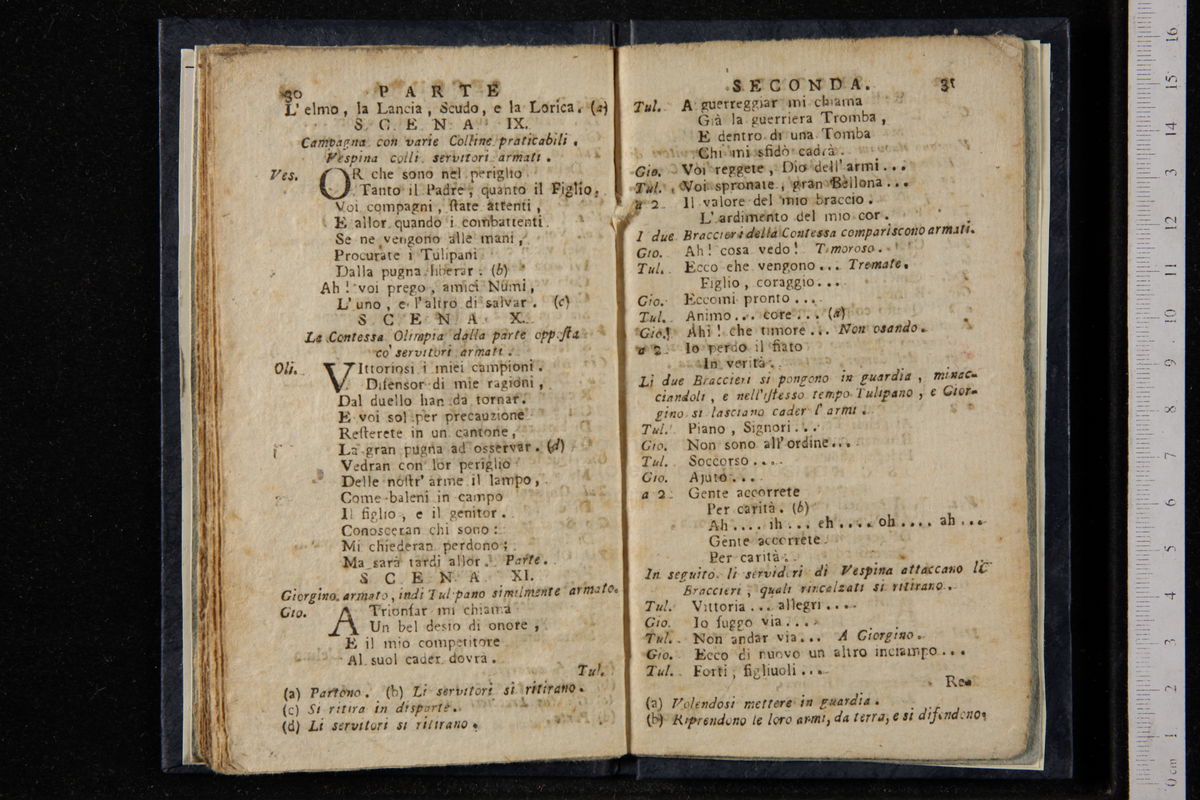 30 PARTE
L' elmo, la Lancia, Scudo, e la Lorica. (a)
SCENA IX.
Campagna con varie Colline praticabili.
Vespina colli servitori armati.
Ves. OR che sono nel periglio
Tanto il Padre, quanto il Figlio,
Voi compagni, ſtate attenti,
E allor quando i combattenti
Se ne vengono alle mani,
Procurate i Tulipani
Dalla pugna liberar. (b)
Ah! voi prego, amici Numi,
L' uno, e l'altro di salvar. (c)
SCENA X.
La Contessa Olimpia dalla parte oppoſta
co' servitori armati.
Oli. VIttoriosi i miei campioni.
Difensor di mie ragioni,
Dal duello han da tornar.
E voi sol per precauzione
Reſterete in un cantone,
La gran pugna ad osservar. (d)
Vedran con lor periglio
Delle noſtr' arme il lampo,
Come baleni in campo
Il figlio, e il genitor.
Conosceran chi sono:
Mi chiederan perdono;
Ma sarà tardi allor. Parte.
SCENA XI.
Giorgino armato, indi Tulipano similmente armato.
Gio. A Trionfar mi chiama
Un bel desio di onore,
E il mio competitore
Al suol cader dovrà.
Tul.
(a) Partono. (b) Li servitori si ritirano.
(c) Si ritira in disparte.
(d) Li servitori si ritirano.
SECONDA. 31
Tul. A guerreggiar mi chiama
Già la guerriera Tromba,
E dentro di una Tomba
Chi mi sfidò cadrà.
Gio. Voi reggete, Dio dell'armi...
Tul. Voi spronate, gran Bellona...
a 2. Il valore del mio braccio.
L'ardimento del mio cor.
I due Braccieri della Contessa compariscono armati.
Gio. Ah! cosa vedo! Timoroso.
Tul. Ecco che vengono... Tremate.
Figlio, coraggio...
Gio. Eccomi pronto....
Tul. Animo... core... (a)
Gio. Ahi! che timore... Non osando.
a 2. Io perdo il fiato
In verità.
Li due Braccieri si pongono in guardia, minac-
ciandoli, e nell'iſtesso tempo Tulipano, e Gior-
gino si lasciano cader l'armi.
Tul. Piano, Signori...
Gio. Non sono all'ordine...
Tul. Soccorso....
Gio. Ajuto....
a 2. Gente accorrete
Per carità. (b)
Ah.... ih... eh.... oh.... ah...
Gente accorrete
Per carità.
In seguito li servidori di Vespina attaccano li
Braccieri, quali rincalzati si ritirano.
Tul. Vittoria... allegri....
Gio. Io fuggo via....
Tul. Non andar via... A Giorgino.
Gio. Ecco di nuovo un altro inciampo...
Tul. Forti, figliuoli....
(a) Volendosi mettere in guardia.
(b) Riprendono le loro armi, da terra, e si difendono.
0 cm 1 2 3 4 5 6 7 8 9 10 11 12 13 14 15 16